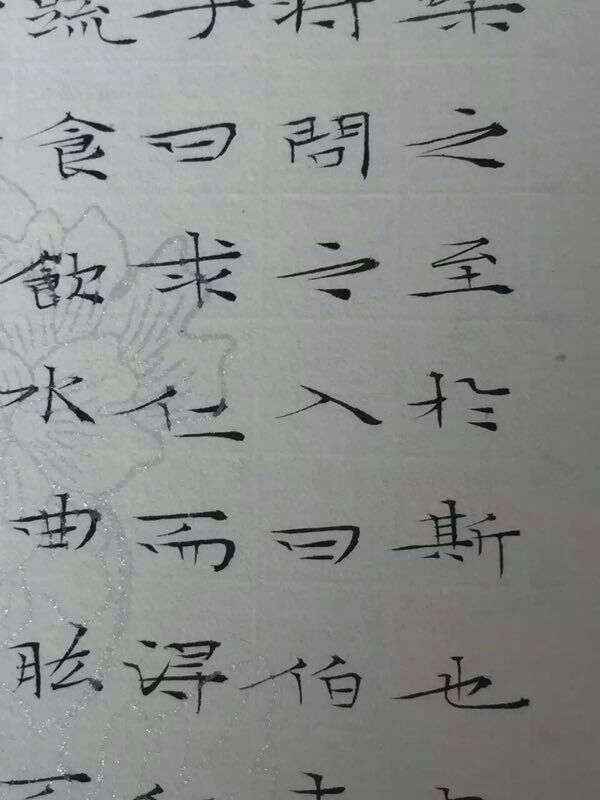 樂之至於斯也
将問之入曰伯
子曰求仁而得
疏食飲水曲肱而